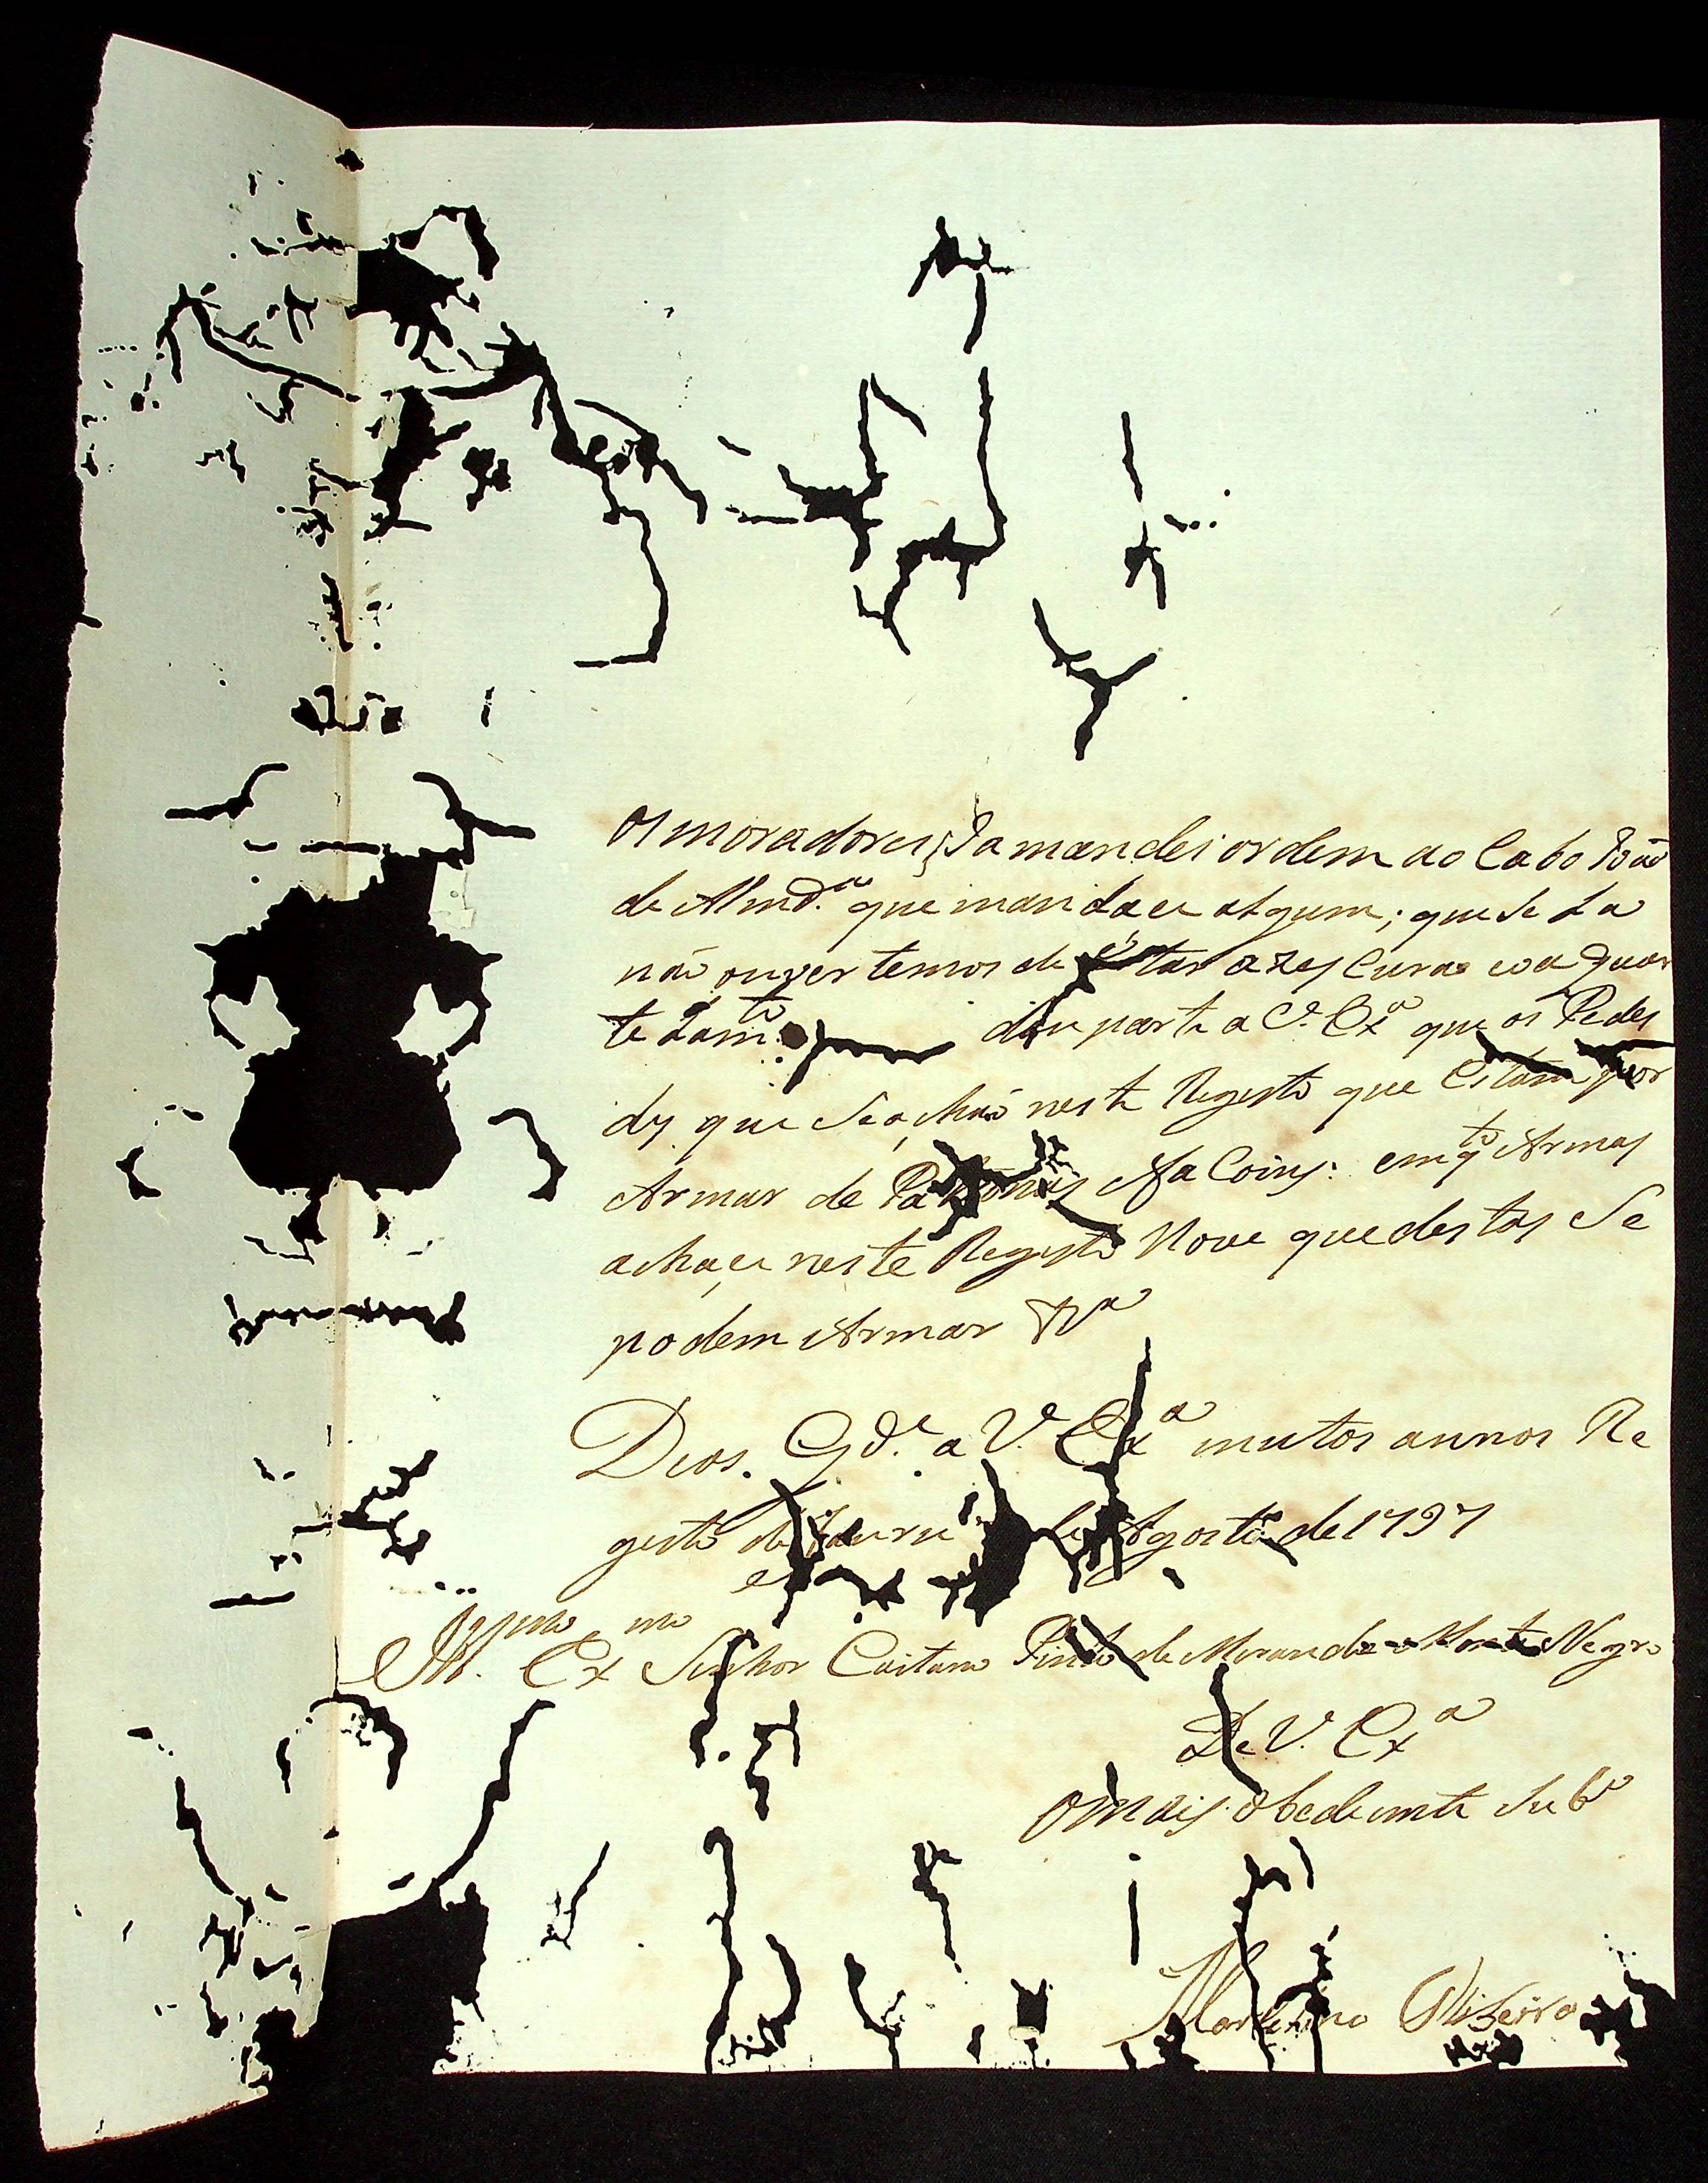 os moradores, Ja mandei ordem ao Cabo João
de Almd.ª que mandace algum; que se La
não ouver temos de estar azes Curas e o a quar
te Lam.to dou parte a V. Ex.ª que os Pedes
dy que se achaõ neste Registo que Estam por
Armar de Na Coiny: emq.to Armas
achace neste Registo Nove que destas Se
podem Armar &ª
Deos. Gd.e a V.e Ex.ª mutos annos Re
gisto de Agosto de 1797
Ill.mo Ex.mo Senhor Caitano Pinto de Miranda Monte Negro
De V. Ex.ª
o mais obediente Sub.º
Oliveira